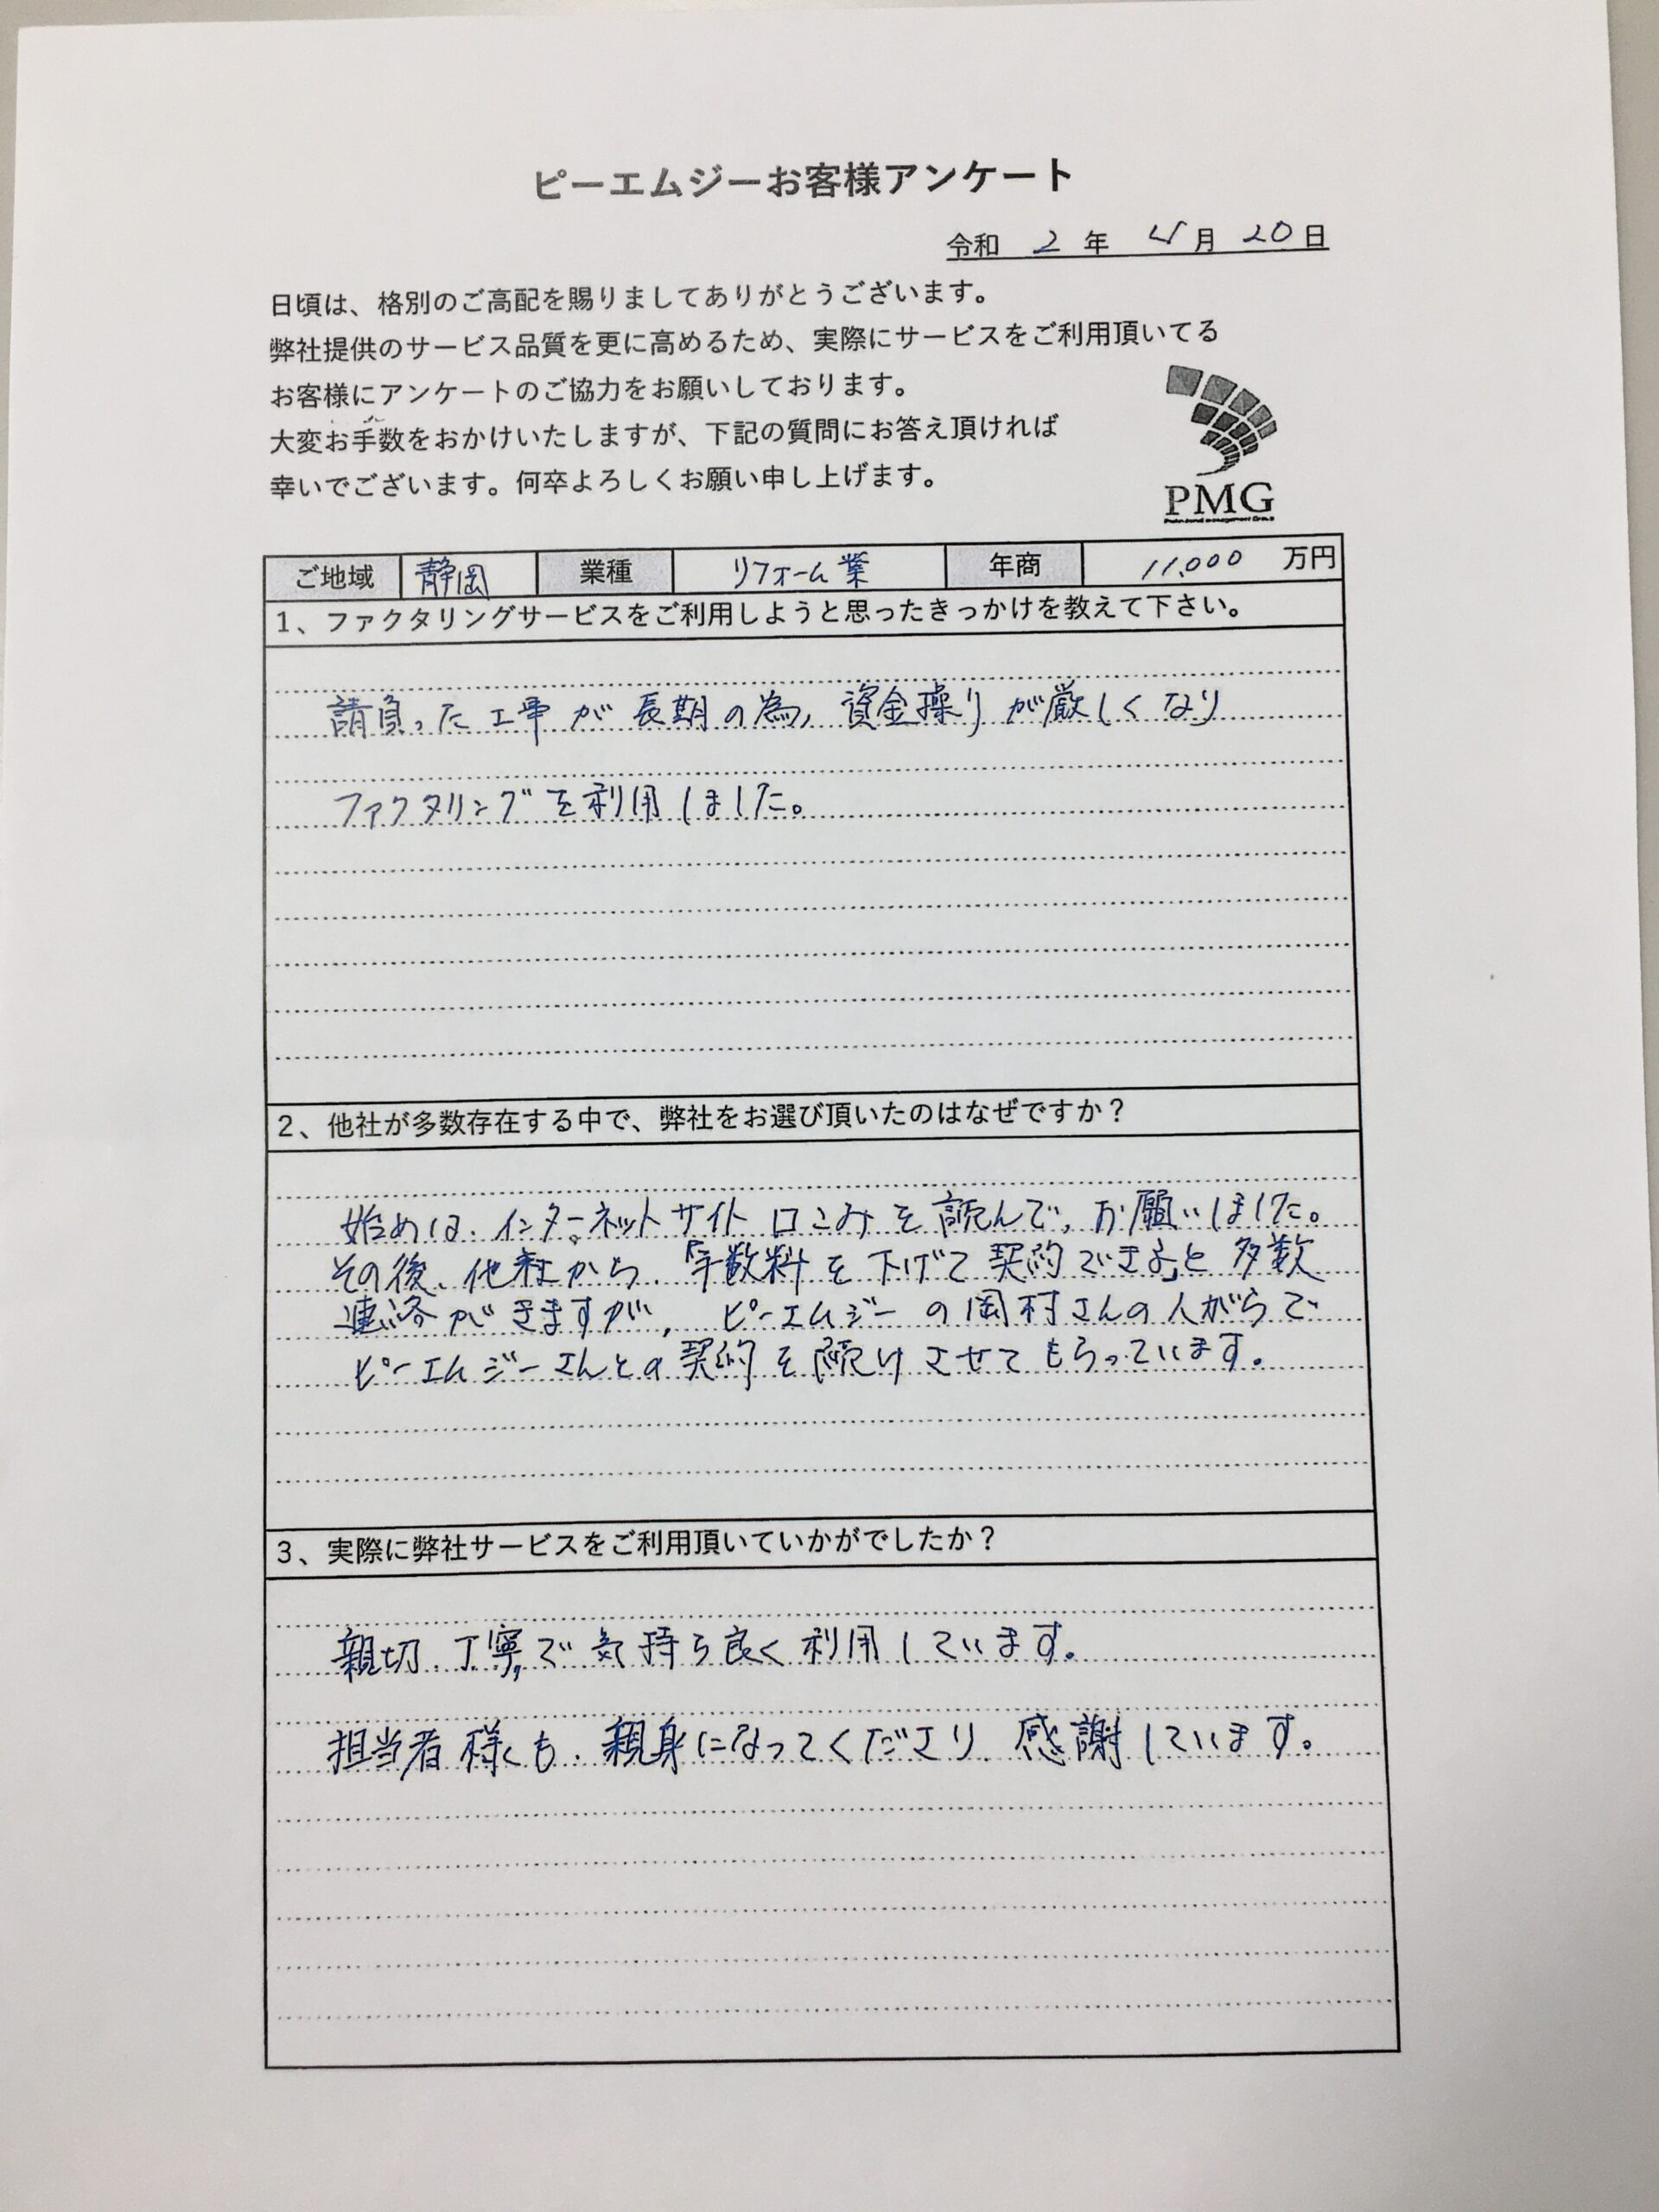 ピーエムジーお客様アンケート
令和 2 年 4 月 20 日
日頃は、格別のご高配を賜りましてありがとうございます。
弊社提供のサービス品質を更に高めるため、実際にサービスをご利用頂いてる
お客様にアンケートのご協力をお願いしております。
大変お手数をおかけいたしますが、下記の質問にお答え頂ければ
幸いでございます。何卒よろしくお願い申し上げます。
PMG
Professional management Group
ご地域 静岡 業種 リフォーム業 年商 11,000 万円
1、ファクタリングサービスをご利用しようと思ったきっかけを教えて下さい。
請負った工事が長期の為、資金操りが厳しくなり
ファクタリングを利用しました。
2、他社が多数存在する中で、弊社をお選び頂いたのはなぜですか？
始めは、インターネットサイト口こみを読んで、お願いしました。
その後、他社から、「手数料を下げて契約できる」と多数
連絡がきますが、ピーエムジーの岡村さんの人がらで
ピーエムジーさんとの契約を続けさせてもらっています。
3、実際に弊社サービスをご利用頂いていかがでしたか？
親切、丁寧で気持ち良く利用しています。
担当者様も、親身になってくださり、感謝しています。